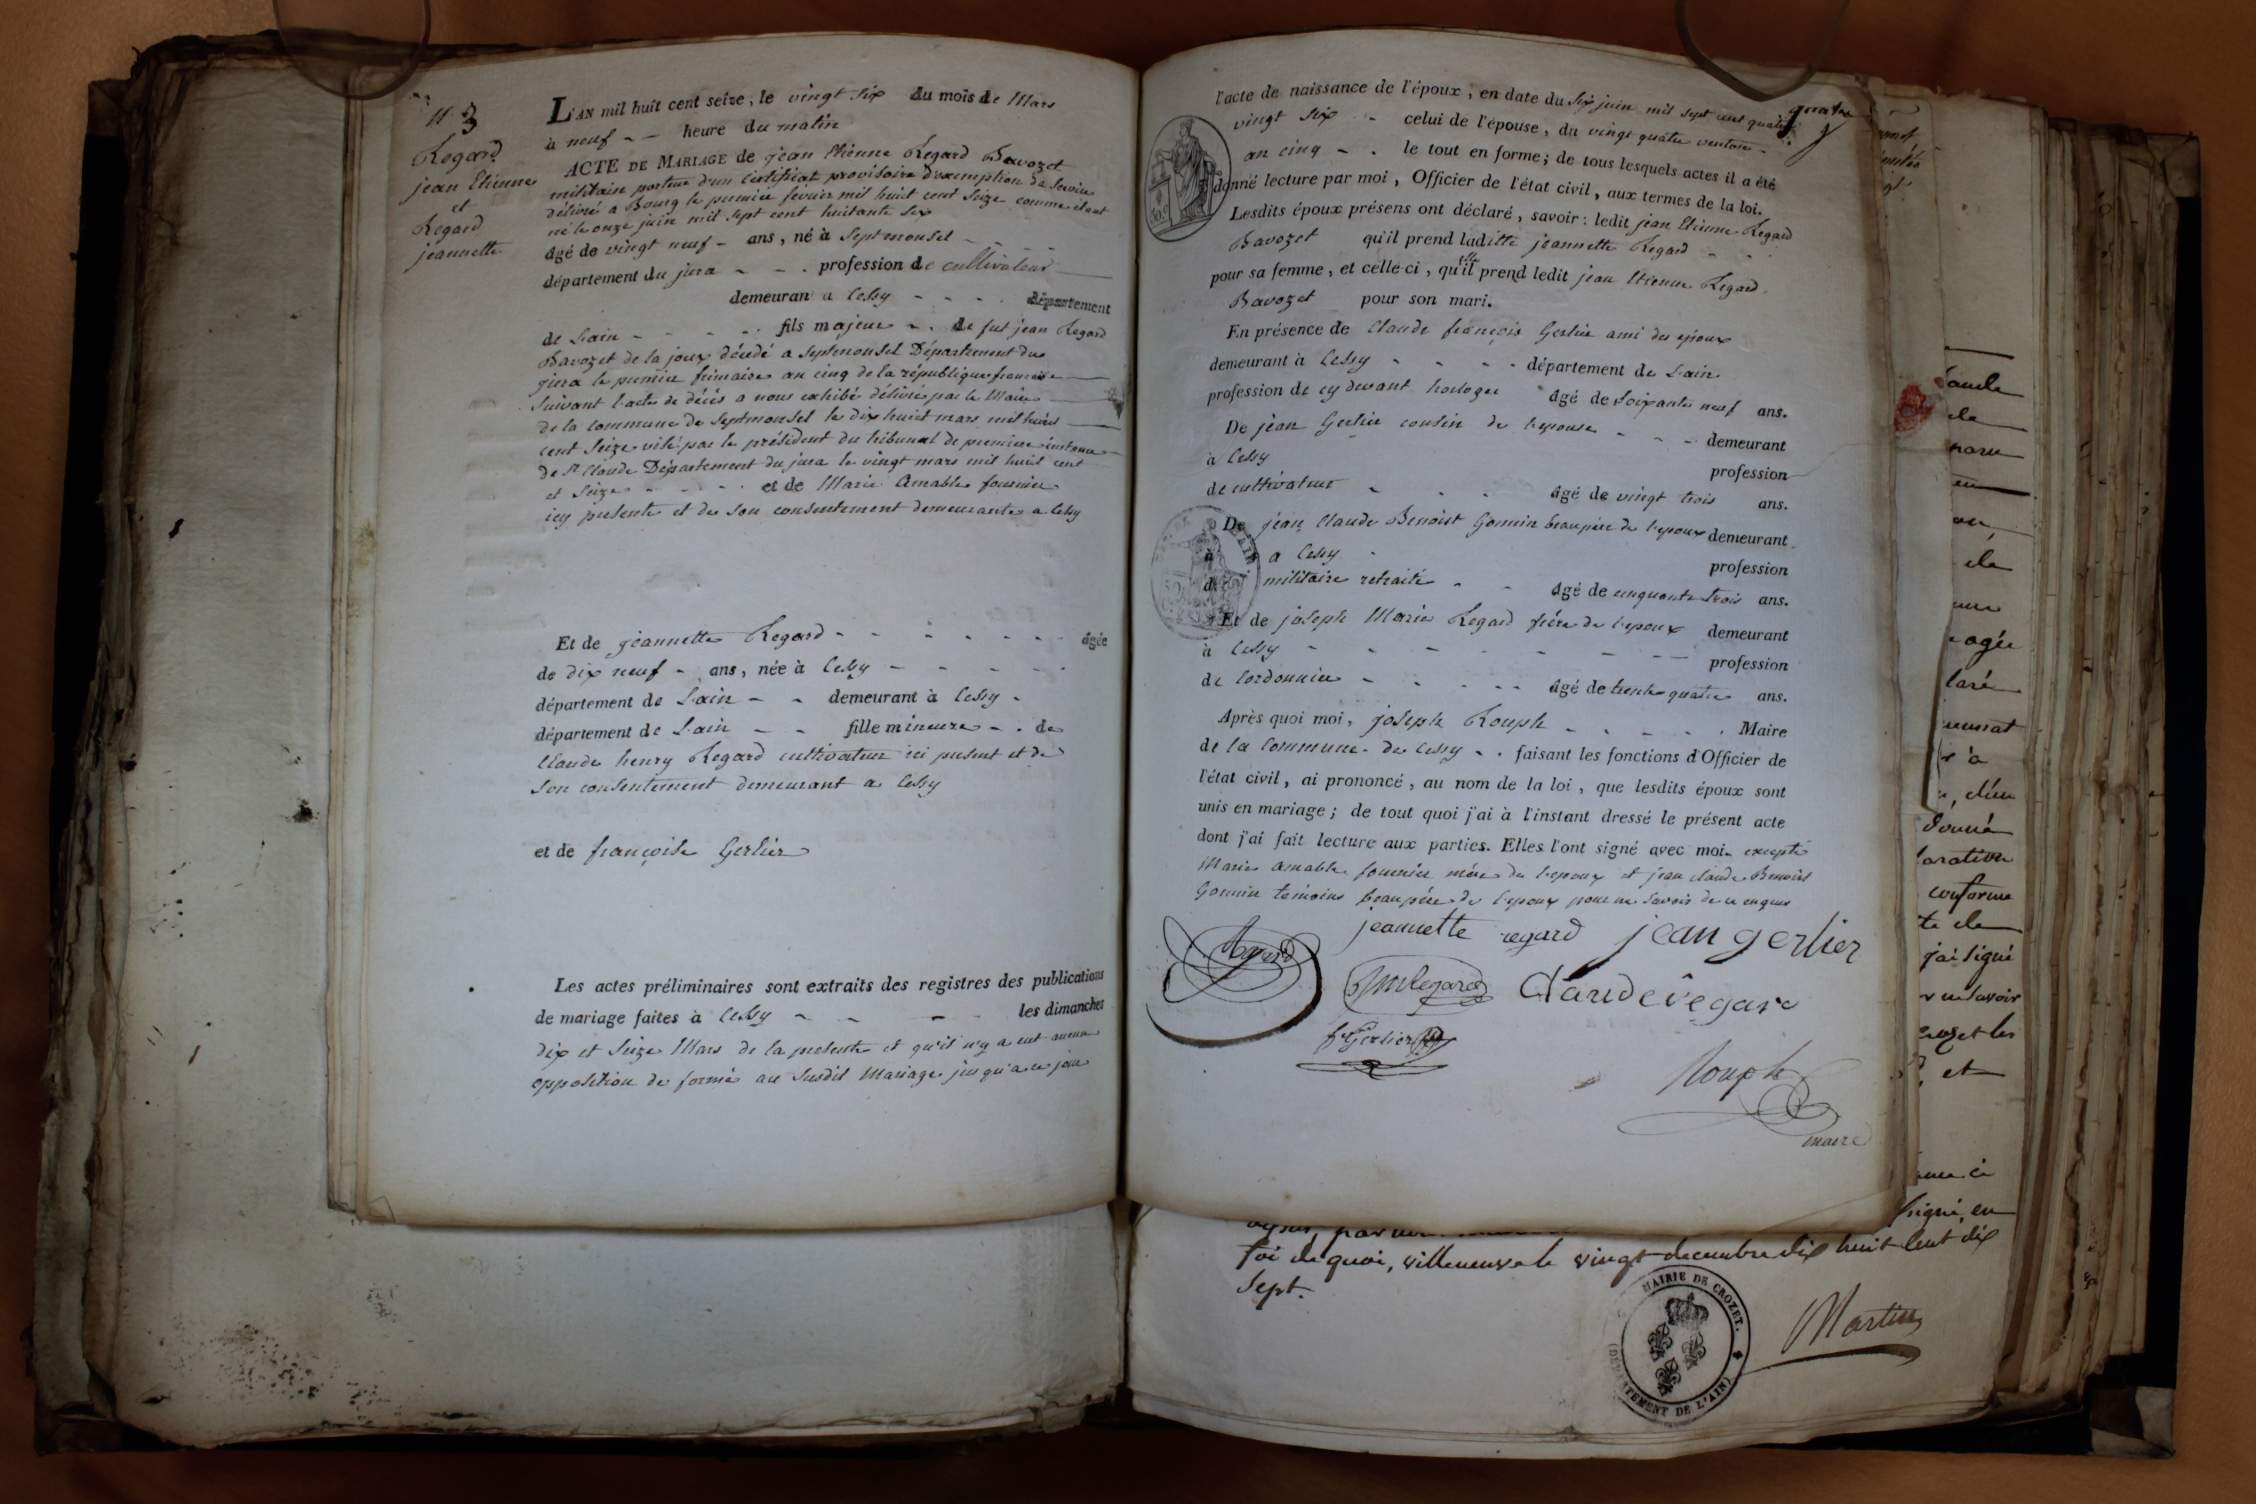 n 3
Regard
jean Etienne
et
Regard
jeannette
L'AN mil huit cent seize, le vingt six du mois de Mars
à neuf - - heure du matin
ACTE DE MARIAGE de jean Etienne Regard Bavozet
militaire porteur d'un Certificat provisoire d'exemption de service
délivré a Bourg le premier fevrier mil huit cent seize comme étant
né le onze juin mil sept cent huitante six
âgé de vingt neuf - ans, né à Septmonsel - - - -
département du jura - - . profession de cultivateur
demeuran a Cessy - - - . département
de L'ain - - - - . fils majeur - . de fut jean Regard
Bavozet de la joux décédé a Septmonsel Département du
jura le premier frimaire an cinq de la république française
suivant l'acte de décès a nous exhibé délivré par le Maire
de la commune de Septmonsel le dix huit mars mil huit
cent seize visé par le président du tribunal de première instance
de St Claude Département du jura le vingt mars mil huit cent
et seize - - - - . et de Marie Amable fournier
icy presente et de son consentement demeurante a Cessy
Et de jeannette Regard - - - - - - - . âgée
de dix neuf - ans, née à Cessy - - - - - .
département de L'ain - - demeurant à Cessy -
département de L'ain - - fille mineure - . de
Claude henry Regard cultivateur ici présent et de
son consentement demeurant a Cessy
et de françoise Gerlier
Les actes préliminaires sont extraits des registres des publications
de mariage faites à Cessy - - - les dimanches
dix et seize Mars de la presente et qu'il n'y a eut aucune
opposition de formé au susdit Mariage jusqu'a ce jour
l'acte de naissance de l'époux, en date du six juin mil sept cent quatre
vingt six - - celui de l'épouse, du vingt quatre ventose -
an cinq - . le tout en forme; de tous lesquels actes il a été
donné lecture par moi, Officier de l'état civil, aux termes de la loi.
Lesdits époux présens ont déclaré, savoir: ledit jean Etienne Regard
Bavozet qu'il prend laditte jeannette Regard - - .
pour sa femme, et celle-ci, qu'elle prend ledit jean Etienne Regard
Bavozet pour son mari.
En présence de Claude françois Gerlier ami des époux
demeurant à Cessy - - - - département de L'ain
profession de cy devant horloger âgé de soixante neuf ans.
De jean Gerlier cousin de l'epouse - - - demeurant
à Cessy profession
de cultivateur - . . âgé de vingt trois ans.
De jean Claude Benoist Gonnin beaupère de l'epoux demeurant
à a Cessy profession
de militaire retraité - - âgé de cinquante trois ans.
Et de joseph Marie Regard frére de l'epoux demeurant
à Cessy - - - - - - - profession
de Cordonnier - - . - - âgé de trente quatre ans.
Après quoi moi, joseph Rouph - . - . . Maire
de la Commune de Cessy - . faisant les fonctions d'Officier de
l'état civil, ai prononcé, au nom de la loi, que lesdits époux sont
unis en mariage; de tout quoi j'ai à l'instant dressé le présent acte
dont j'ai fait lecture aux parties. Elles l'ont signé avec moi excepté
Marie Amable fournier mére de l'epoux et jean claude Benoist
Gonnin temoins beaupére de l'epoux pour ne savoir de ce enquis
Regard jeannette regard jean gerlier
jm Regard Claude regard
fs Gerlier
Rouph
maire
foi de quoi, villeneuve le vingt decembre dix huit cent dix
sept.
MAIRIE DE CROZET.
(DÉPARTEMENT DE L'AIN)
Martin